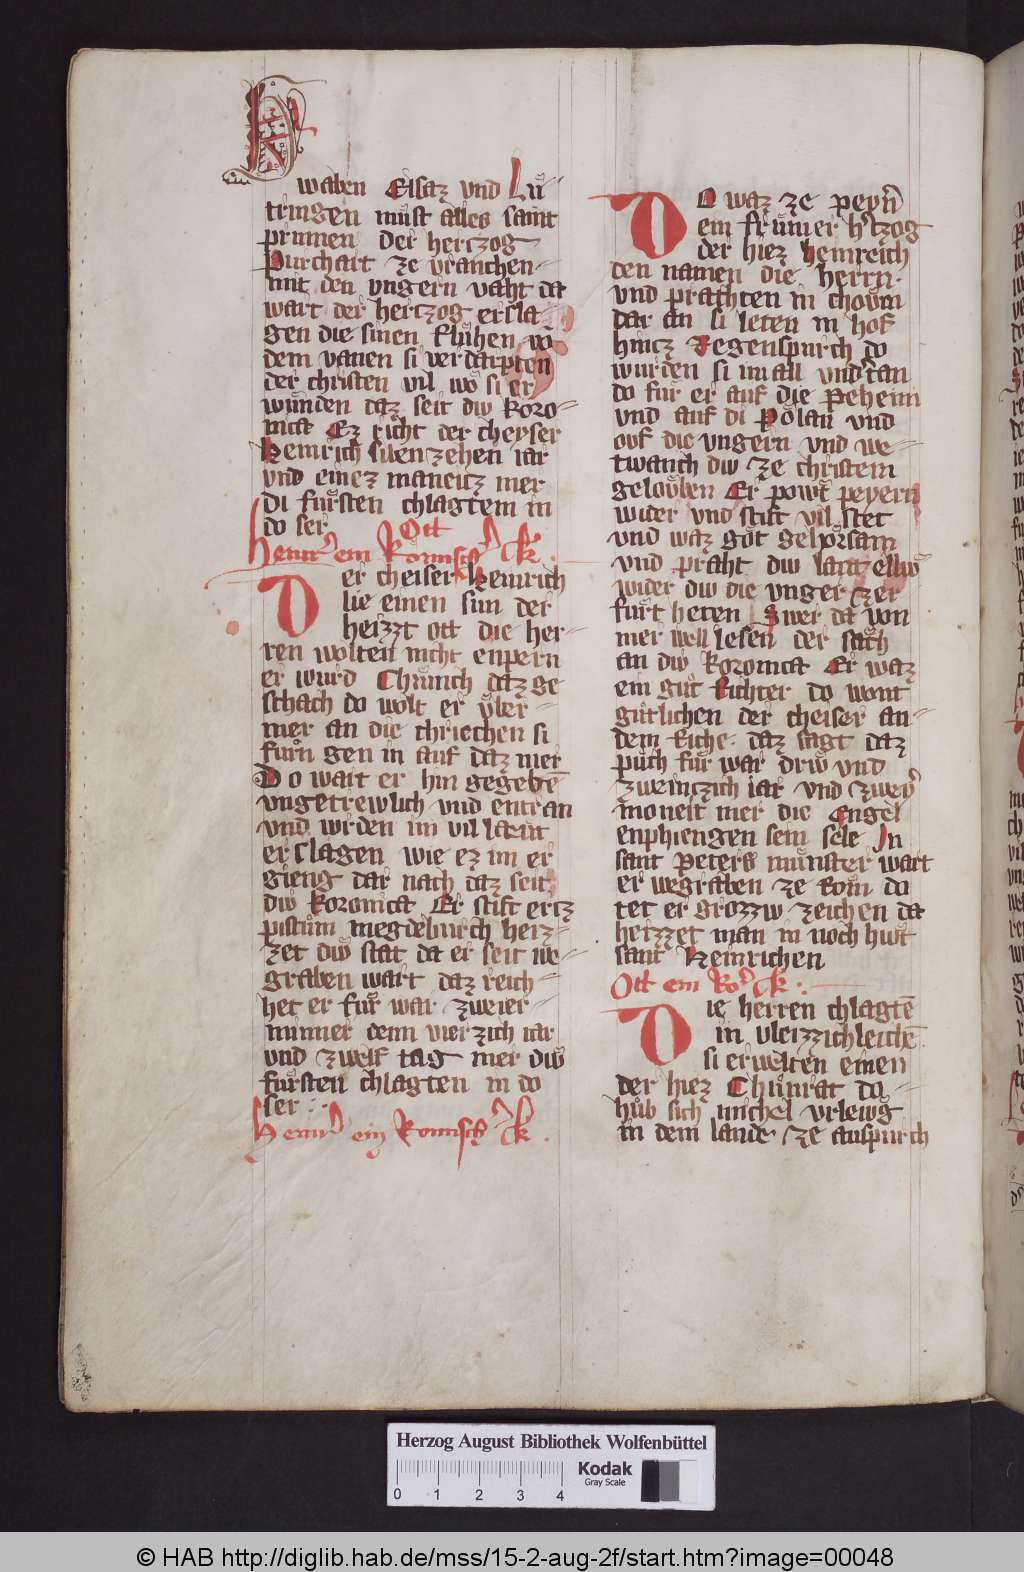 waben Elsaz vnd Lů
tringen můst alles samt
prinnen Der herczog
Purchart ze vranchen
mit den vngern vaht da
wart der herczog ersla
gen die sinen fluͦhen võ
dem vanen si verdarpten
der christen vil wo si er
wunden daz seit diw koro
nica Ez richt der cheyser
Heinrich siwenzehen iar
vnd einez maneitz mer
di fuͤrsten chlagtem in
do ser
Ott
Heinr ein Römisch k
Der cheiser Heinrich
lie einen sun der
heizzt ott die her
ren wolten nicht enpern
er wurd Chuͤnich daz ge
schach do wolt er vͤber
mer an die chriechen si
furn gen in auf daz mer
Do wart er hin gegebẽ
vngetrewlich vnd entran
vnd wrden im vil laeut
erslagen wie ez im er
gieng dar nach daz seit
diw koronica Er stift ercz
pistum megdeburch heiz
zet diw stat da er seit we
graben wart daz reich
het er fuͤr war zweier
minner denn vierzich iar
vnd zwelf tag mer diw
fuͤrsten chlagten in do
ser
Heinr ein Romisch k
DO waz ze peyrñ
ein fruͤmer hˢtzog
der hiez heinreich
den namen die herrn
vnd prachten in choum
dar an si leten in hof
hincz Regenspurch do
wurden si im all vndertan
do fuͤr er auf die Peheim
vnd auf di Polan vnd
ouf die vngern vnd we
twanch diw ze christem
gelouben Er powt peyern
wider vnd stift vil stet
vnd waz got gehorsam
vnd praht diw lant elliw
wider diw die vnger zer
fuͤrt heten Swer da von
mer well lesen der sach
an diw koronica Er waz
ein guͦt Richter do wont
guͤtlichen der cheiser an
dem Riche daz sagt daz
puͦch fuͤr war driw vnd
zweinczich iar vnd zweyˢ
moneit mer die Engel
enphiengen sein sele In
sant Peters muͤnster wart
er wegraben ze Rom do
tet er grozziw zeichen da
heizzet man in noch hiwt
sant Heinrichen
Ott ein Roˢ k
Die herren chlagtẽ
in vleizzichleichẽ
si erwelten einen
der hiez Chuͦnrat do
huͦb sich michel vrlewg
in dem lande ze auspurch
Herzog August Bibliothek Wolfenbüttel
Kodak
Gray Scale
0 1 2 3 4
© HAB http://diglib.hab.de/mss/15-2-aug-2f/start.htm?image=00048